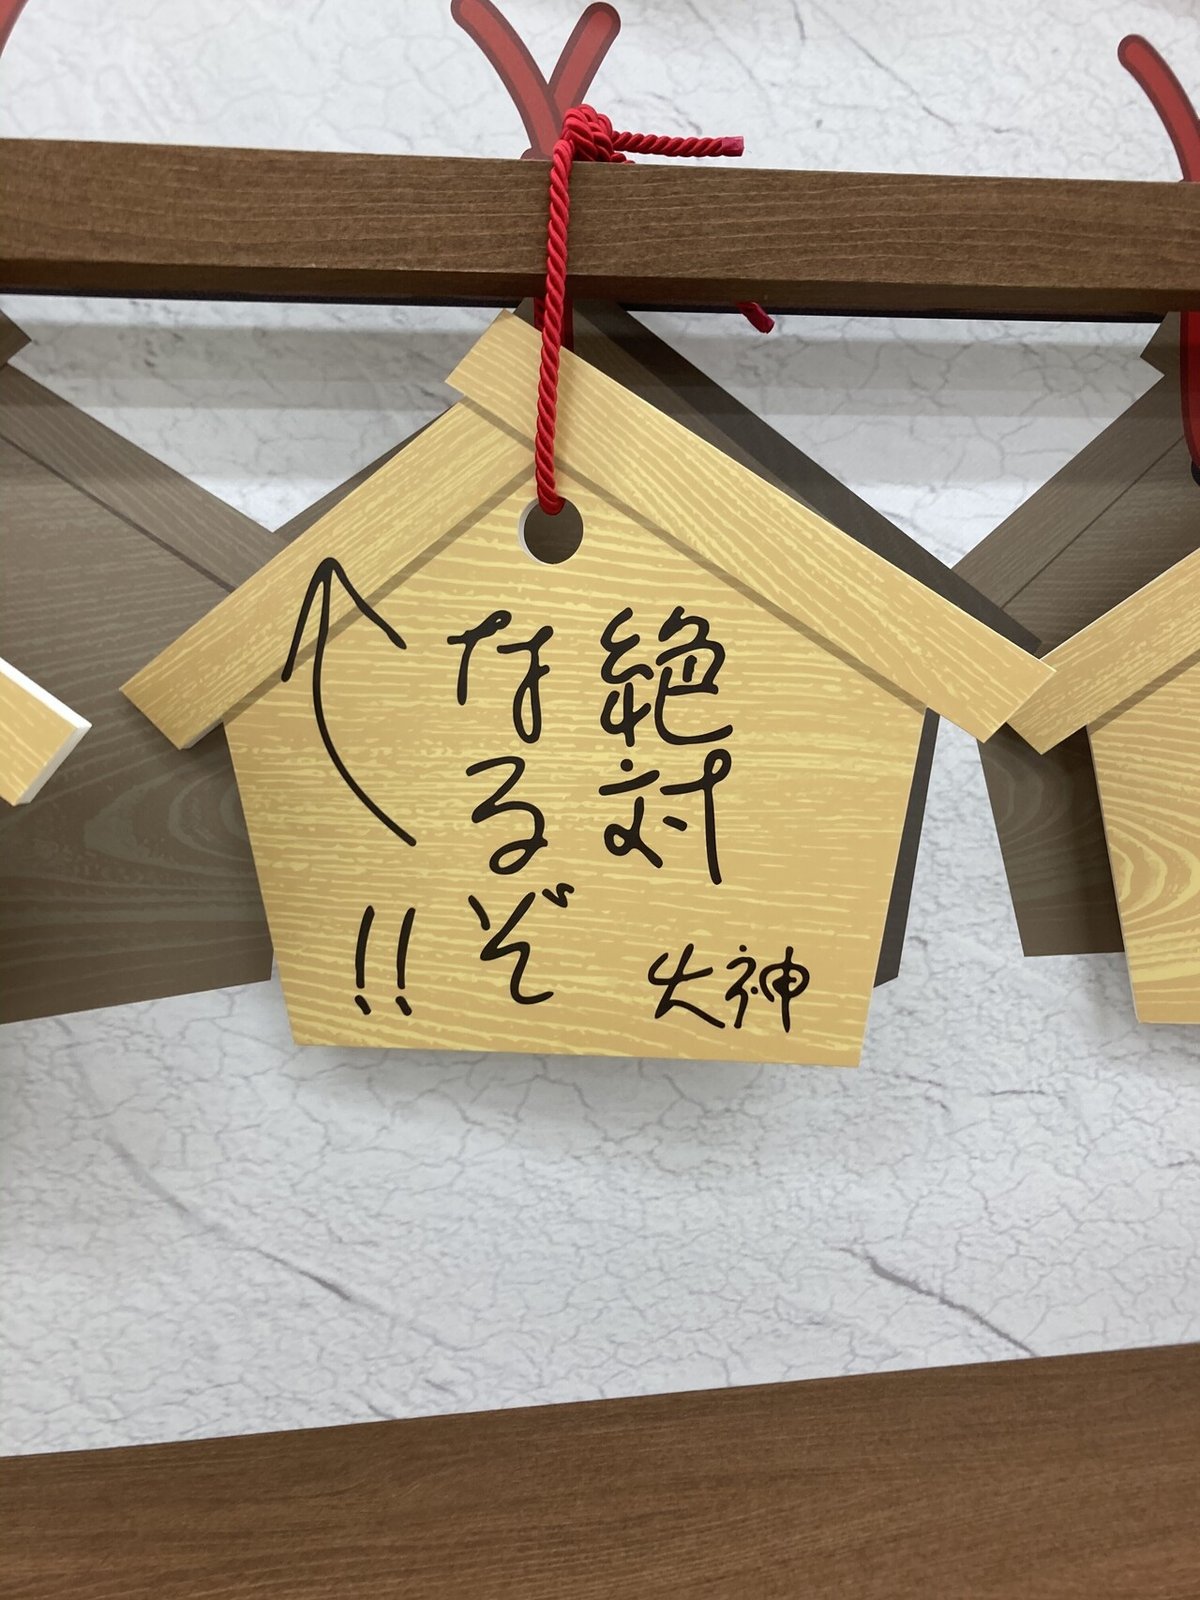 絶対
なるぞ
!!
火神